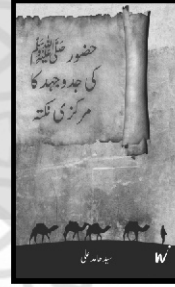 حضور ﷺ
کی جدوجہد کا
مرکزی نکتہ
سید حامد علی
W